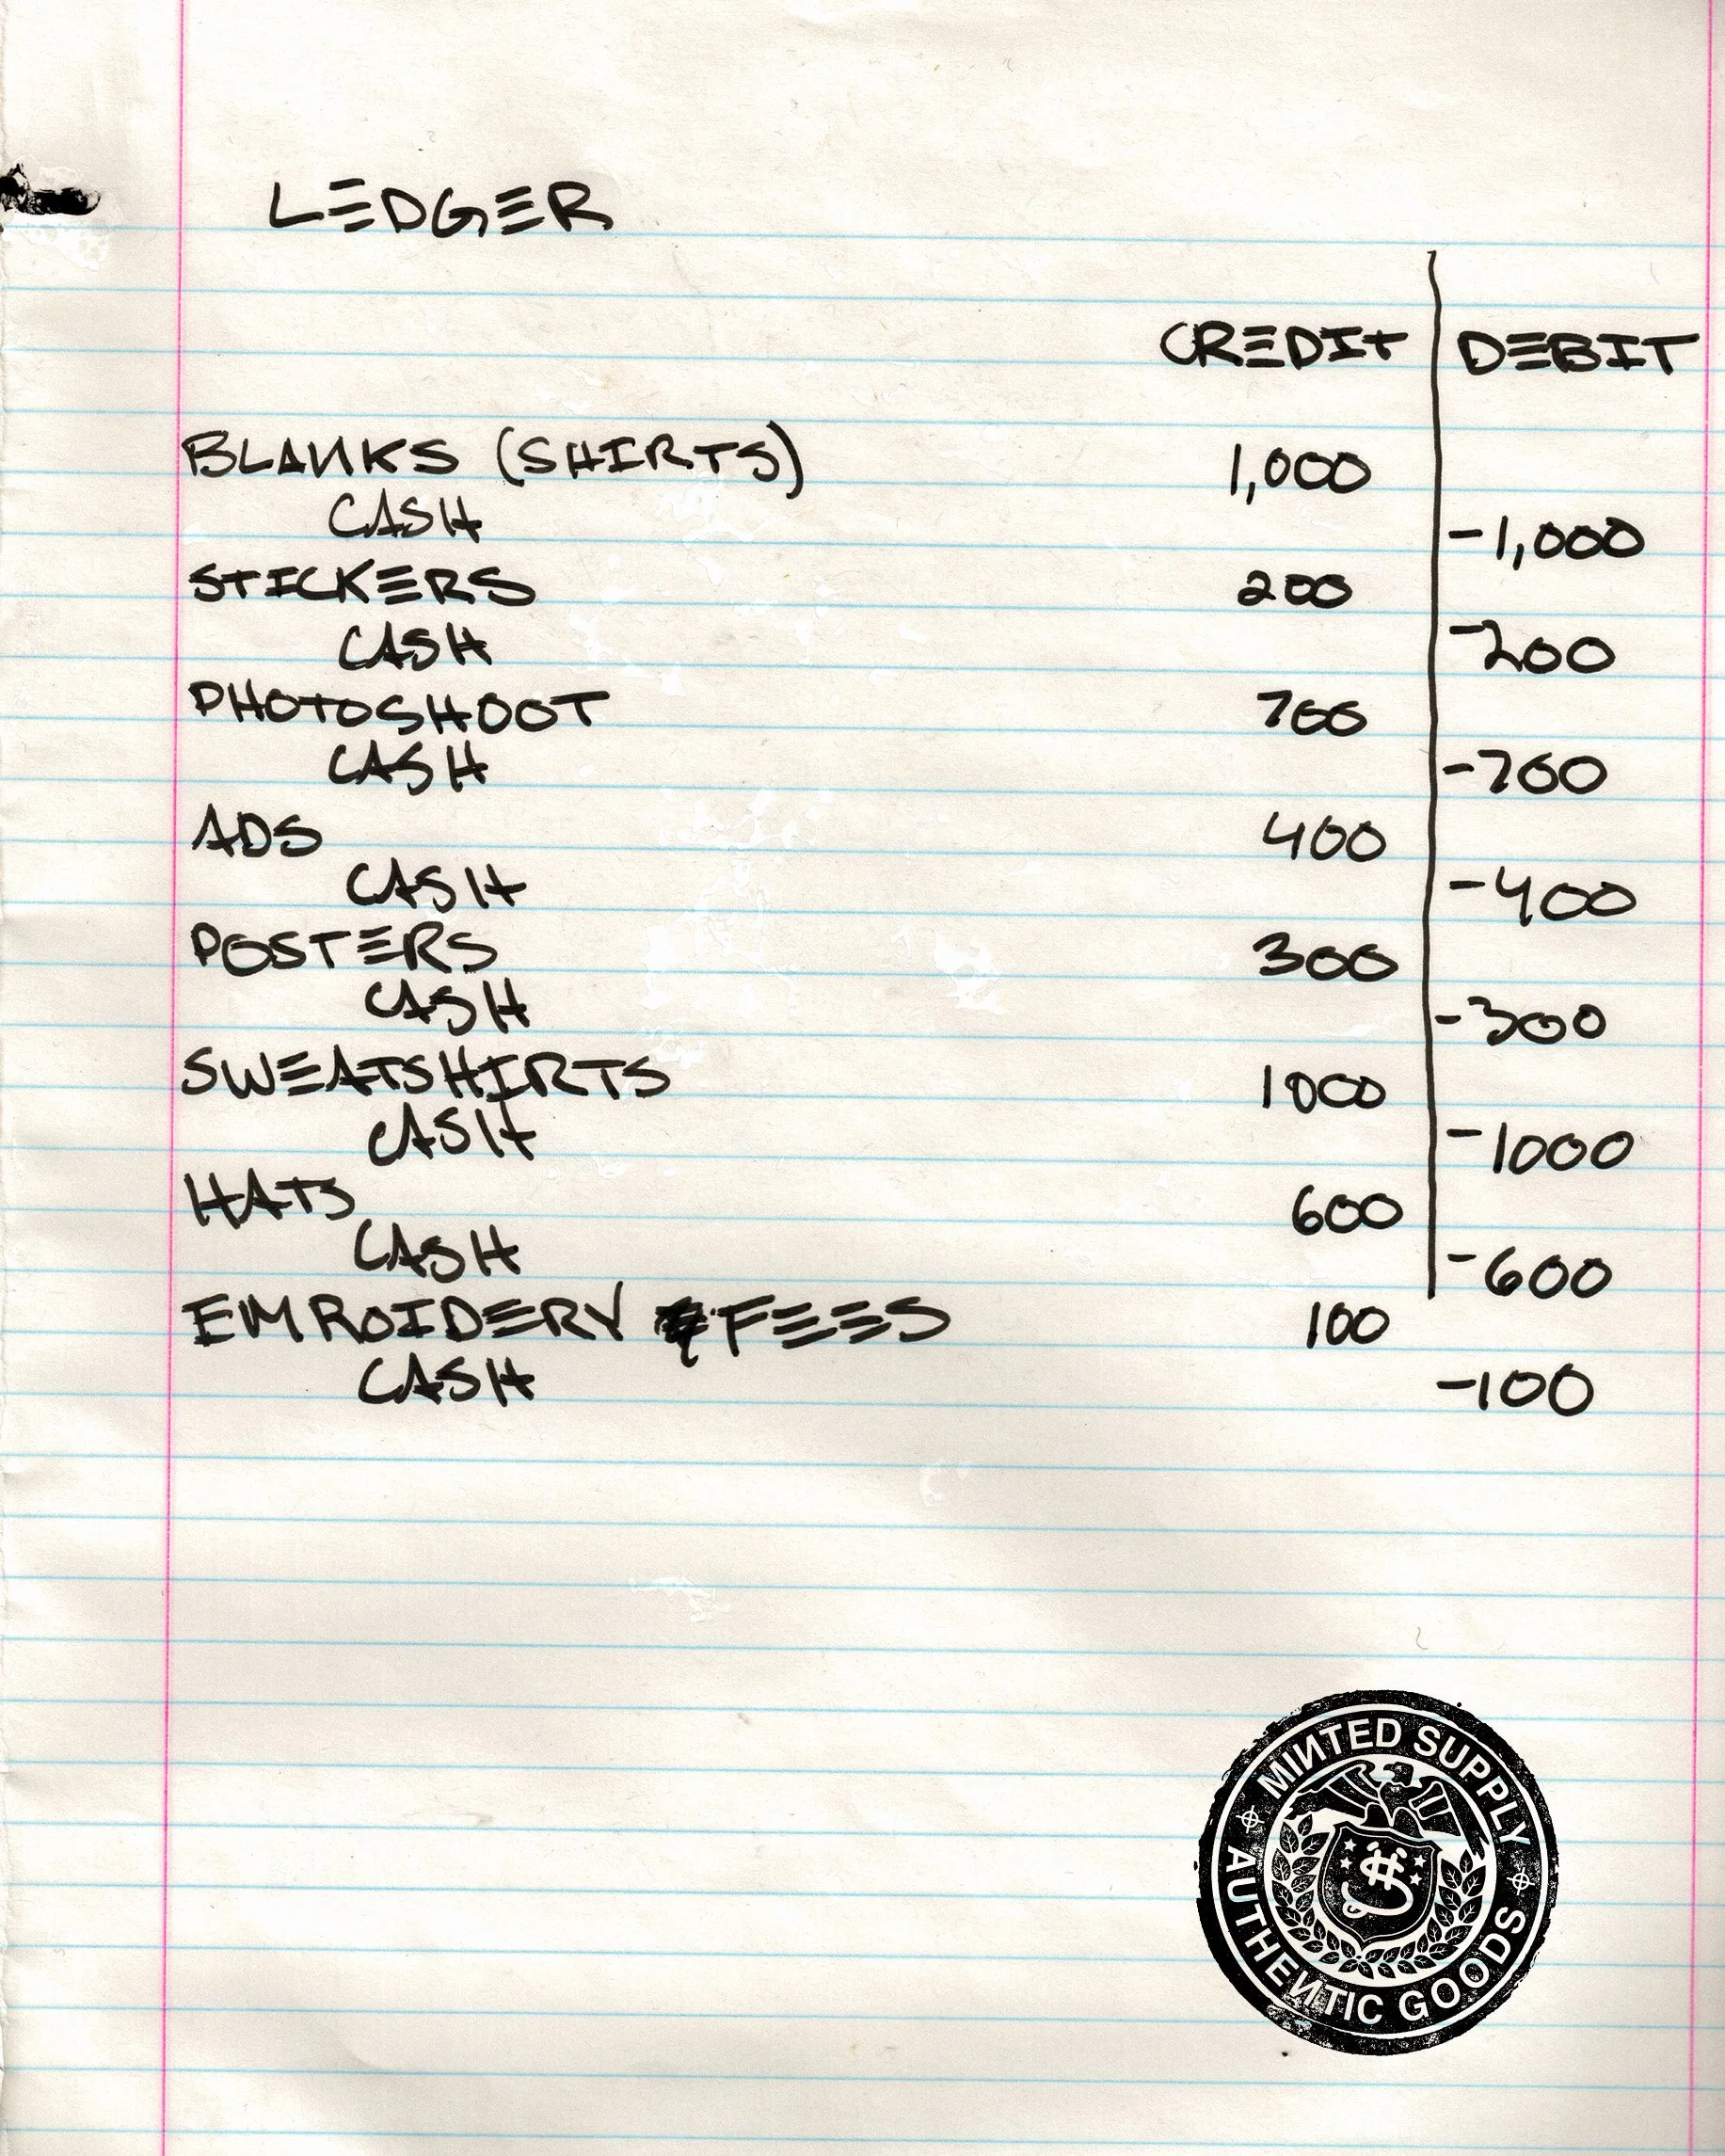 LEDGER
CREDIT DEBIT
BLANKS (SHIRTS) 1,000
CASH -1,000
STICKERS 200
CASH -200
PHOTOSHOOT 700
CASH -700
ADS 400
CASH -400
POSTERS 300
CASH -300
SWEATSHIRTS 1000
CASH -1000
HATS 600
CASH -600
EMROIDERY FEES 100
CASH -100
MINTED SUPPLY
AUTHENTIC GOODS